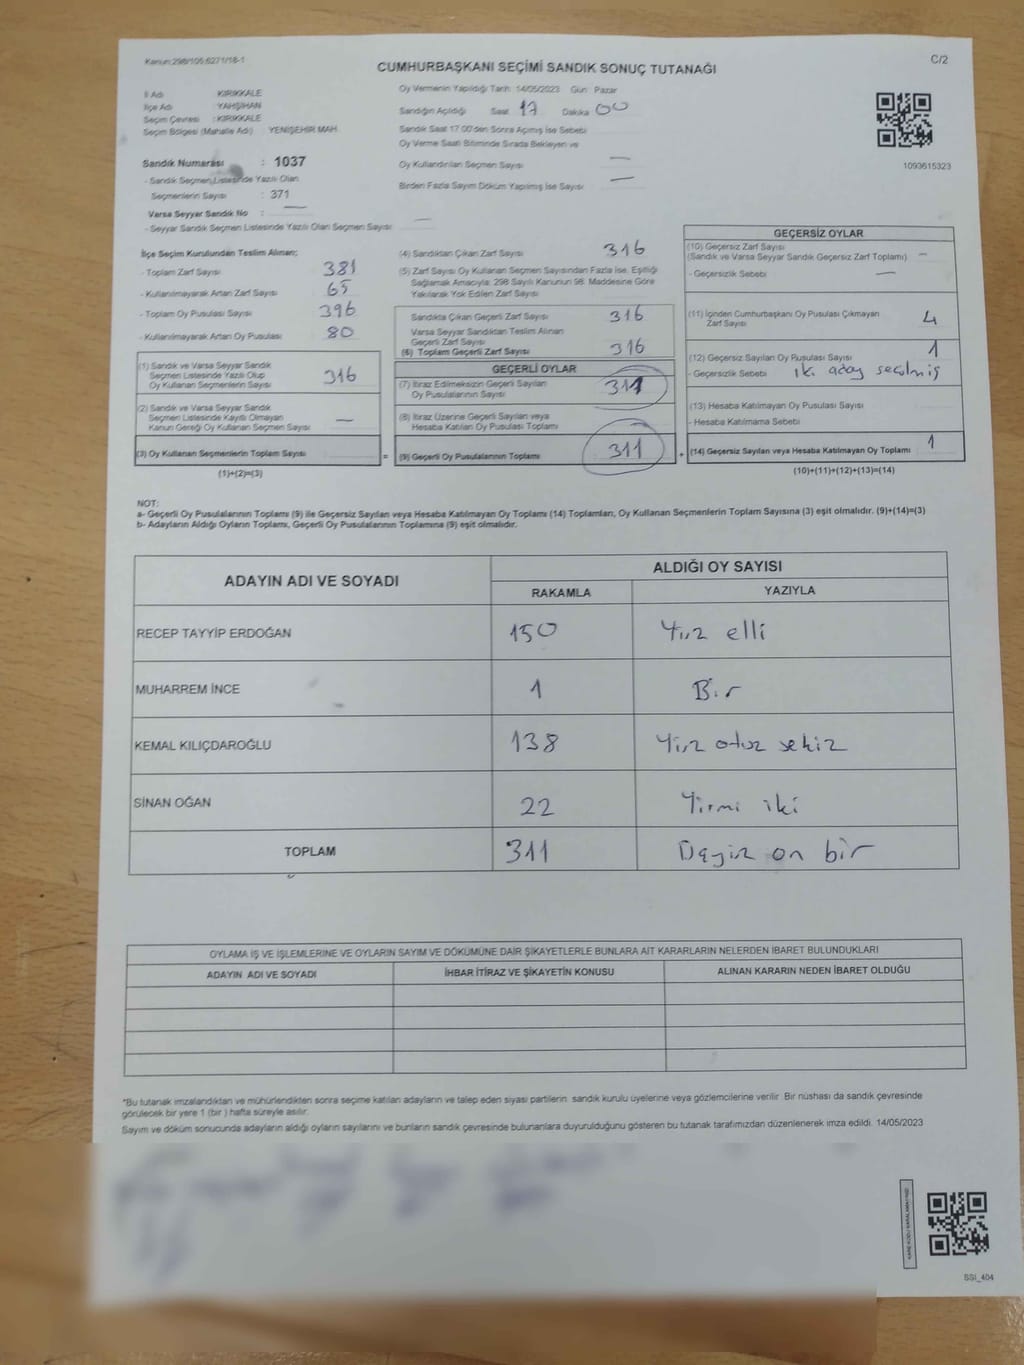 Kanun:298/105,6271/18-1
C/2
CUMHURBAŞKANI SEÇİMİ SANDIK SONUÇ TUTANAĞI
İl Adı : KIRIKKALE
İlçe Adı : YAHŞİHAN
Seçim Çevresi : KIRIKKALE
Seçim Bölgesi (Mahalle Adı) : YENİŞEHİR MAH.
Sandık Numarası : 1037
- Sandık Seçmen Listesinde Yazılı Olan
Seçmenlerin Sayısı : 371
Varsa Seyyar Sandık No : —
- Seyyar Sandık Seçmen Listesinde Yazılı Olan Seçmen Sayısı: —
Oy Vermenin Yapıldığı Tarih: 14/05/2023 Gün: Pazar
Sandığın Açıldığı Saat 17 Dakika 00
Sandık Saat 17.00'den Sonra Açılmış İse Sebebi
Oy Verme Saati Bitiminde Sırada Bekleyen ve
Oy Kullandırılan Seçmen Sayısı —
Birden Fazla Sayım Döküm Yapılmış İse Sayısı —
1093615323
İlçe Seçim Kurulundan Teslim Alınan;
- Toplam Zarf Sayısı 381
- Kullanılmayarak Artan Zarf Sayısı 65
- Toplam Oy Pusulası Sayısı 396
- Kullanılmayarak Artan Oy Pusulası 80
(1) Sandık ve Varsa Seyyar Sandık
Seçmen Listesinde Yazılı Olup
Oy Kullanan Seçmenlerin Sayısı 316
(2) Sandık ve Varsa Seyyar Sandık
Seçmen Listesinde Kayıtlı Olmayan
Kanun Gereği Oy Kullanan Seçmen Sayısı —
(3) Oy Kullanan Seçmenlerin Toplam Sayısı
(1)+(2)=(3)
=
(4) Sandıktan Çıkan Zarf Sayısı 316
(5) Zarf Sayısı Oy Kullanan Seçmen Sayısından Fazla İse, Eşitliği
Sağlamak Amacıyla; 298 Sayılı Kanunun 98. Maddesine Göre
Yakılarak Yok Edilen Zarf Sayısı
Sandıkta Çıkan Geçerli Zarf Sayısı 316
Varsa Seyyar Sandıktan Teslim Alınan
Geçerli Zarf Sayısı
(6) Toplam Geçerli Zarf Sayısı 316
GEÇERLİ OYLAR
(7) İtiraz Edilmeksizin Geçerli Sayılan
Oy Pusulalarının Sayısı 311
(8) İtiraz Üzerine Geçerli Sayılan veya
Hesaba Katılan Oy Pusulası Toplamı —
(9) Geçerli Oy Pusulalarının Toplamı 311
+
GEÇERSİZ OYLAR
(10) Geçersiz Zarf Sayısı
(Sandık ve Varsa Seyyar Sandık Geçersiz Zarf Toplamı) —
- Geçersizlik Sebebi —
(11) İçinden Cumhurbaşkanı Oy Pusulası Çıkmayan
Zarf Sayısı 4
(12) Geçersiz Sayılan Oy Pusulası Sayısı 1
- Geçersizlik Sebebi iki aday seçilmiş
(13) Hesaba Katılmayan Oy Pusulası Sayısı
- Hesaba Katılmama Sebebi
(14) Geçersiz Sayılan veya Hesaba Katılmayan Oy Toplamı 1
(10)+(11)+(12)+(13)=(14)
NOT:
a- Geçerli Oy Pusulalarının Toplamı (9) ile Geçersiz Sayılan veya Hesaba Katılmayan Oy Toplamı (14) Toplamları, Oy Kullanan Seçmenlerin Toplam Sayısına (3) eşit olmalıdır. (9)+(14)=(3)
b- Adayların Aldığı Oyların Toplamı, Geçerli Oy Pusulalarının Toplamına (9) eşit olmalıdır.
ADAYIN ADI VE SOYADI ALDIĞI OY SAYISI
RAKAMLA YAZIYLA
RECEP TAYYİP ERDOĞAN 150 Yüz elli
MUHARREM İNCE 1 Bir
KEMAL KILIÇDAROĞLU 138 Yüz otuz sekiz
SİNAN OĞAN 22 Yirmi iki
TOPLAM 311 on bir
OYLAMA İŞ VE İŞLEMLERİNE VE OYLARIN SAYIM VE DÖKÜMÜNE DAİR ŞİKAYETLERLE BUNLARA AİT KARARLARIN NELERDEN İBARET BULUNDUKLARI
ADAYIN ADI VE SOYADI İHBAR İTİRAZ VE ŞİKAYETİN KONUSU ALINAN KARARIN NEDEN İBARET OLDUĞU
*Bu tutanak imzalandıktan ve mühürlendikten sonra seçime katılan adayların ve talep eden siyasi partilerin sandık kurulu üyelerine veya gözlemcilerine verilir. Bir nüshası da sandık çevresinde
görülecek bir yere 1 (bir ) hafta süreyle asılır.
Sayım ve döküm sonucunda adayların aldığı oyların sayılarını ve bunların sandık çevresinde bulunanlara duyurulduğunu gösteren bu tutanak tarafımızdan düzenlenerek imza edildi. 14/05/2023
SSİ_404